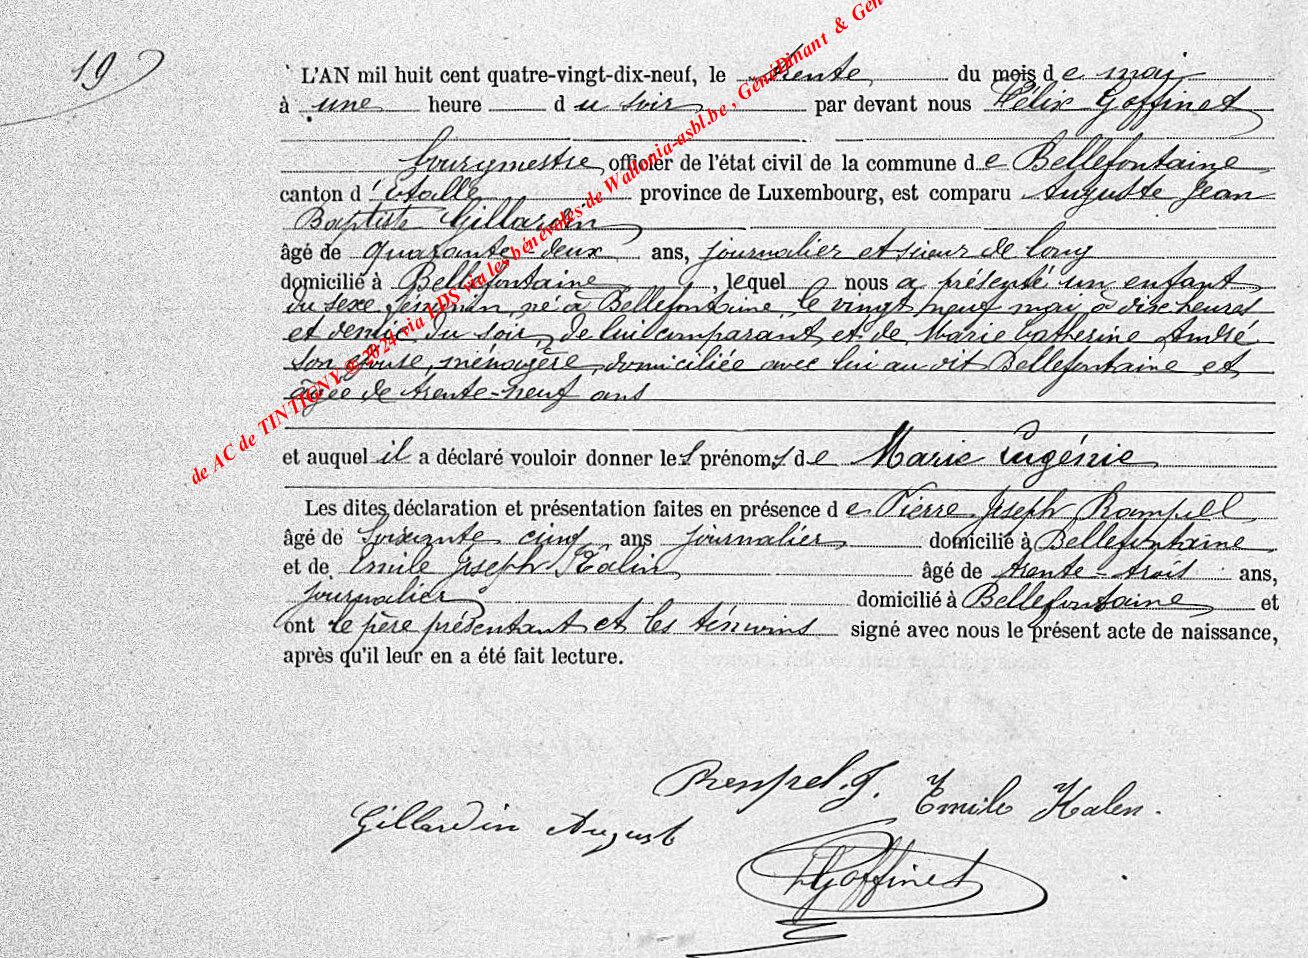 19
L'AN mil huit cent quatre-vingt-dix-neuf, le trente du mois de mai
à une heure du soir par devant nous Félix Goffinet
bourgmestre, officier de l'état civil de la commune de Bellefontaine
canton d'Etalle province de Luxembourg, est comparu Auguste Jean
Baptiste Gillardin
âgé de quarante deux ans, journalier et scieur de long
domicilié à Bellefontaine, lequel nous a présenté un enfant
du sexe féminin, né à Bellefontaine, le vingt neuf mai à dix heures
et demie du soir, de lui comparant et de Marie Catherine André
son épouse, ménagère, domiciliée avec lui au dit Bellefontaine et
âgée de trente-neuf ans
et auquel il a déclaré vouloir donner les prénoms de Marie Eugénie
Les dites déclaration et présentation faites en présence de Pierre Joseph
âgé de Soixante cinq ans journalier domicilié à Bellefontaine
et de Emile Joseph âgé de trente-trois ans,
journalier domicilié à Bellefontaine et
ont le père présentant et les témoins signé avec nous le présent acte de naissance,
après qu'il leur en a été fait lecture.
J. Emile
Gillardin August
Goffinet
de AC de TINTIGNY @2024 via LDS via les bénévoles de Wallonia-asbl.be, GénéDinant & Gen